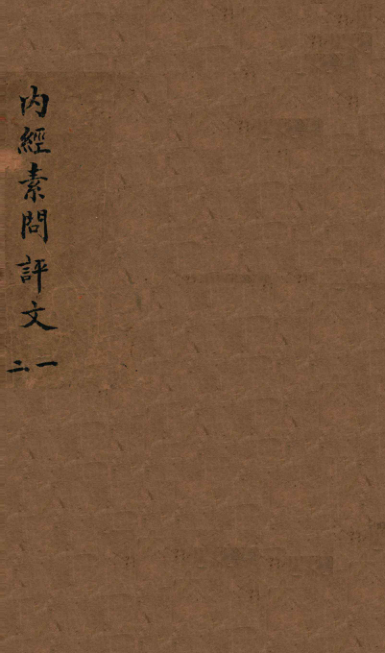 內經素問評文
一二